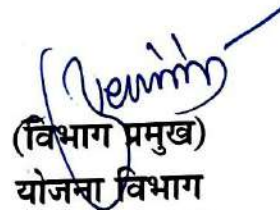 (विभाग प्रमुख)
योजना विभाग